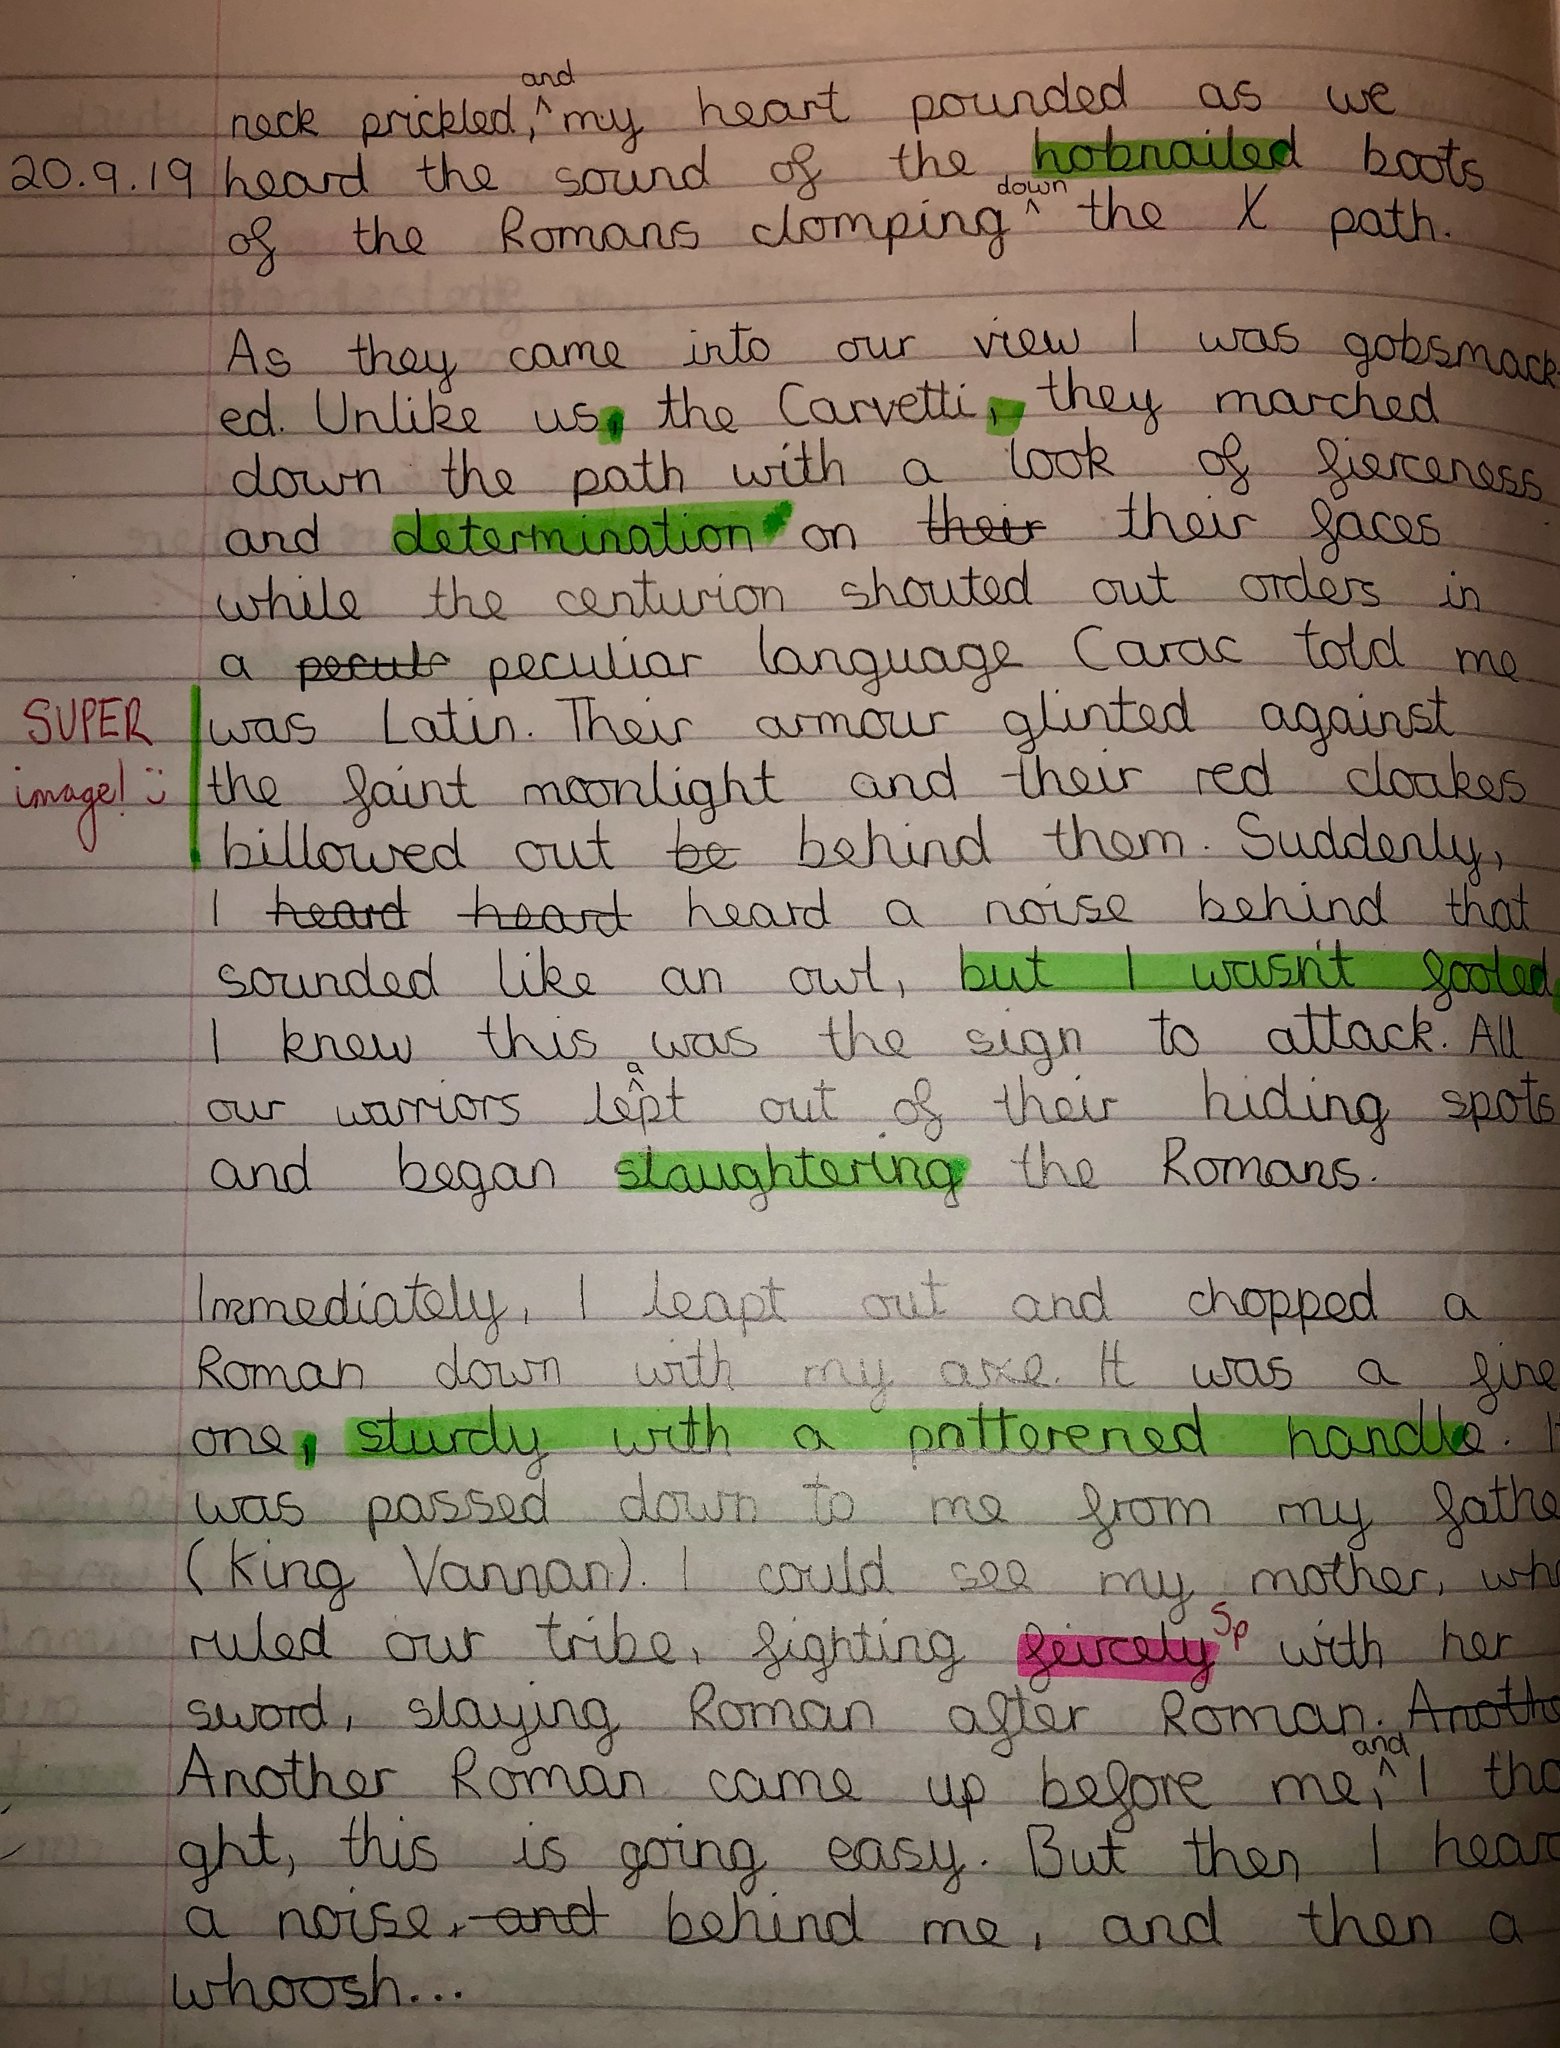 and
neck prickled, ^ my heart pounded as we
20.9.19 heard the sound of the hobnailed boots
down
of the Romans clomping ^ the X path.
As they came into our view I was gobsmack-
ed. Unlike us, the Carvetti, they marched
down the path with a look of fierceness
and determination on their their faces
while the centurion shouted out orders in
a pecul peculiar language Carac told me
SUPER was Latin. Their armour glinted against
image! :) the faint moonlight and their red cloakes
billowed out be behind them. Suddenly,
I heard heard heard a noise behind that
sounded like an owl, but I wasn't fooled,
I knew this was the sign to attack. All
a
our warriors le^pt out of their hiding spots
and began slaughtering the Romans.
Immediately, I leapt out and chopped a
Roman down with my axe. It was a fine
one, sturdy with a patterened handle. I
was passed down to me from my fathe
(King Vannan). I could see my mother, wh
ruled our tribe, fighting feircely Sp with her
sword, slaying Roman after Roman. Anothe
and
Another Roman came up before me, ^ I tho
ght, this is going easy. But then I hear
a noise, and behind me, and then a
whoosh...